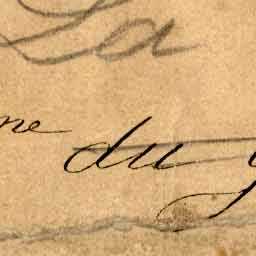 La
me du